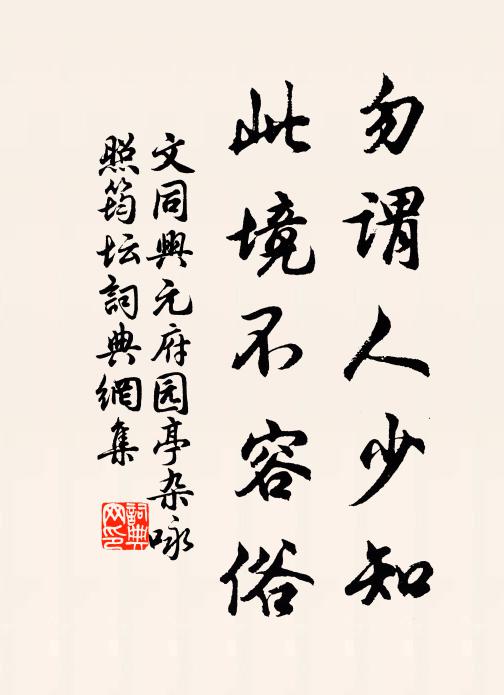 勿谓人少知
此境不容俗
文同興元府园亭杂咏
照筠坛詞典網集
詞典
网印